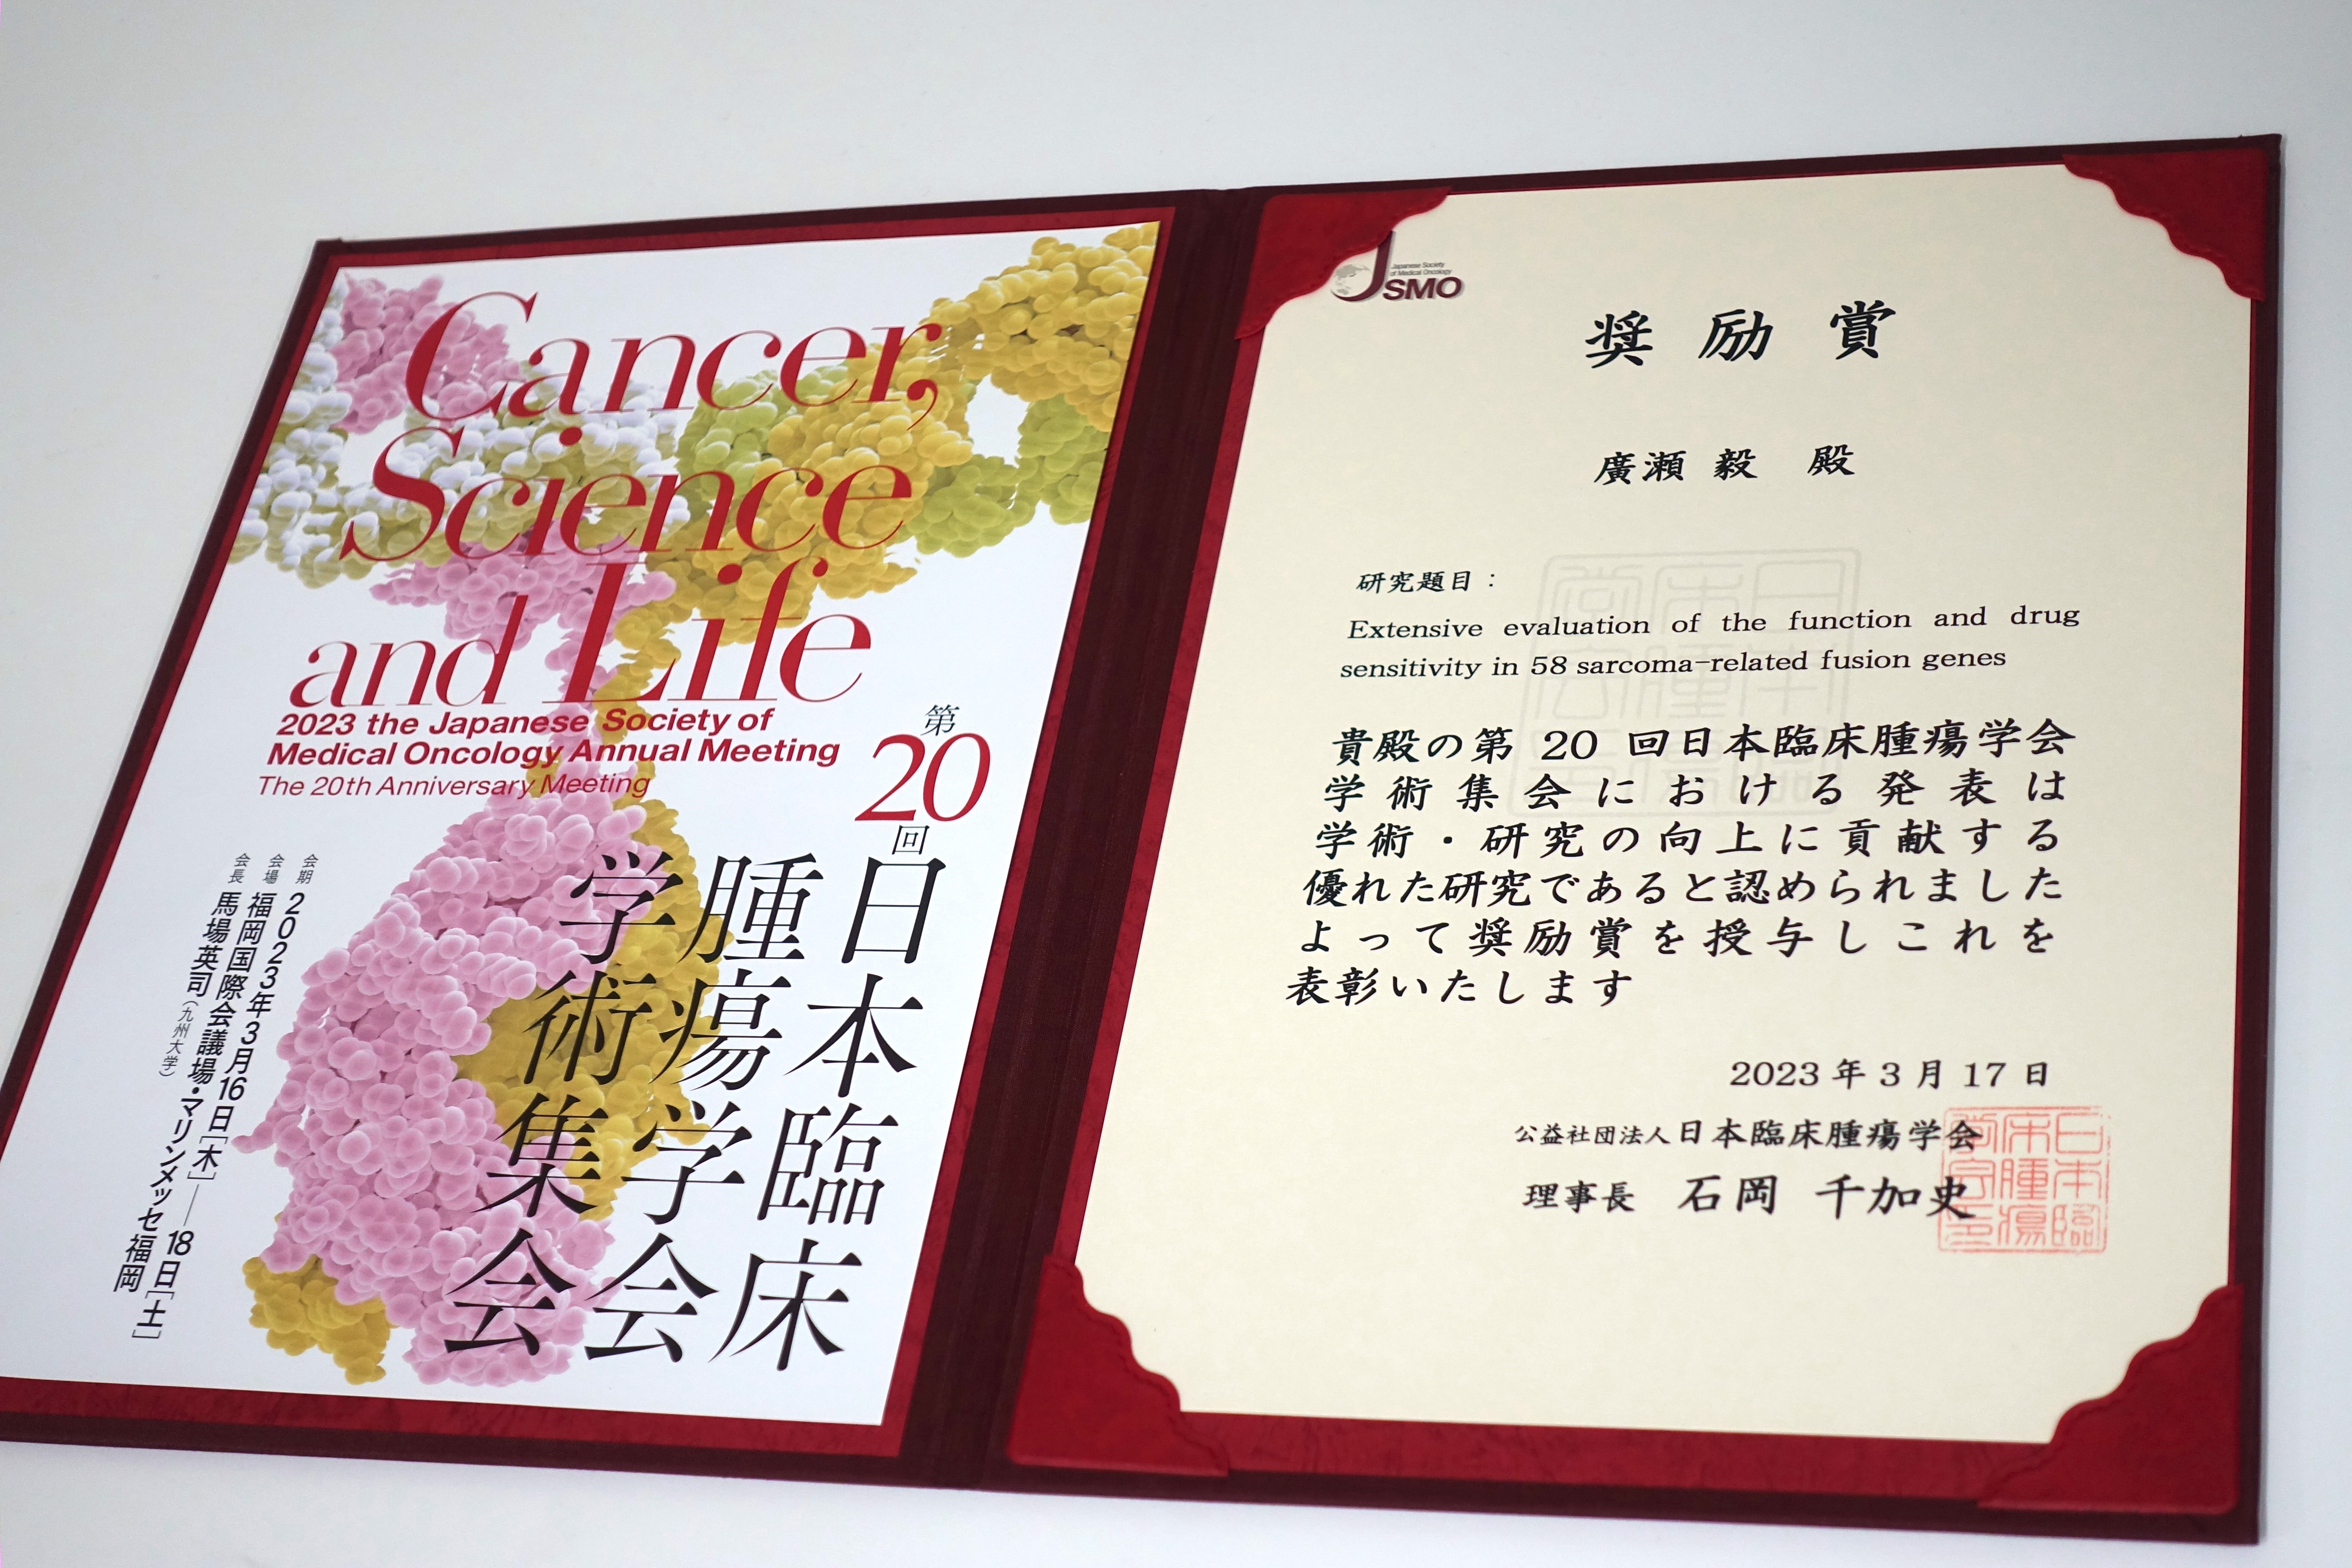 Cancer,
Science
and Life
2023 the Japanese Society of
Medical Oncology Annual Meeting
The 20th Anniversary Meeting
第
20
回
日本臨床
腫瘍学会
学術集会
会期 2023年3月16日[木]——18日[土]
会場 福岡国際会議場・マリンメッセ福岡
会長 馬場英司(九州大学)
Japanese Society
of Medical Oncology
JSMO
奨励賞
廣瀬 毅 殿
研究題目：
Extensive evaluation of the function and drug
sensitivity in 58 sarcoma-related fusion genes
貴殿の第 20 回日本臨床腫瘍学会
学術集会における発表は
学術・研究の向上に貢献する
優れた研究であると認められました
よって奨励賞を授与しこれを
表彰いたします
2023 年 3 月 17 日
公益社団法人日本臨床腫瘍学会
理事長 石岡 千加史
日本臨
床腫瘍
学会印